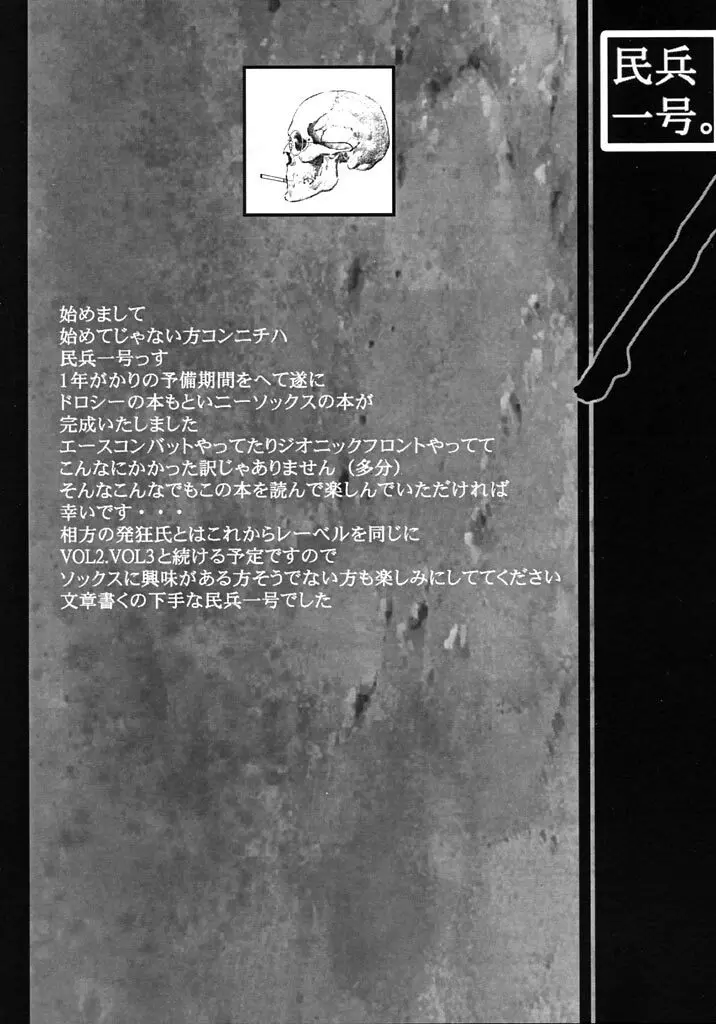 民兵
一号。
始めまして
始めてじゃない方コンニチハ
民兵一号っす
1年がかりの予備期間をへて遂に
ドロシーの本もといニーソックスの本が
完成いたしました
エースコンバットやってたりジオニックフロントやってて
こんなにかかった訳じゃありません（多分）
そんなこんなでもこの本を読んで楽しんでいただければ
幸いです・・・
相方の発狂氏とはこれからレーベルを同じに
VOL2.VOL3と続ける予定ですので
ソックスに興味がある方そうでない方も楽しみにしててください
文章書くの下手な民兵一号でした